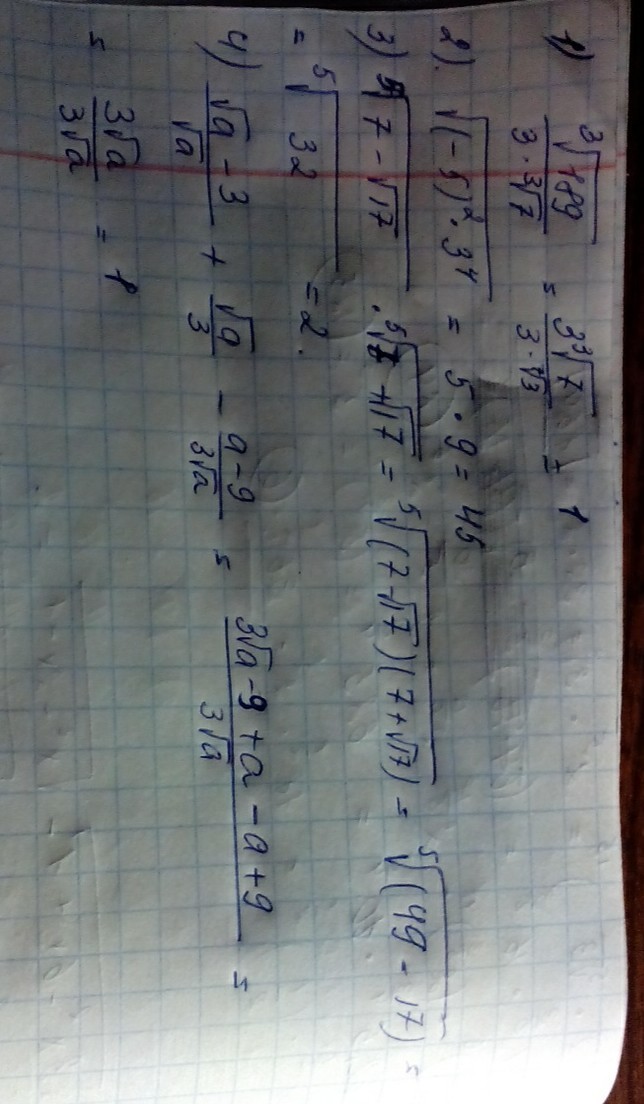 1) ∛189 / (3·∛7) = 3∛7 / (3·√3) = 1
2). √((-5)²·3⁴) = 5·9 = 45
3) ⁵√(7-√17) · ⁵√(7+√17) = ⁵√((7-√17)(7+√17)) = ⁵√((49-17)) =
= ⁵√32 = 2.
4) (√a-3)/√a + √a/3 - (a-9)/(3√a) = (3√a-9+a-a+9)/(3√a) =
= 3√a/(3√a) = 1